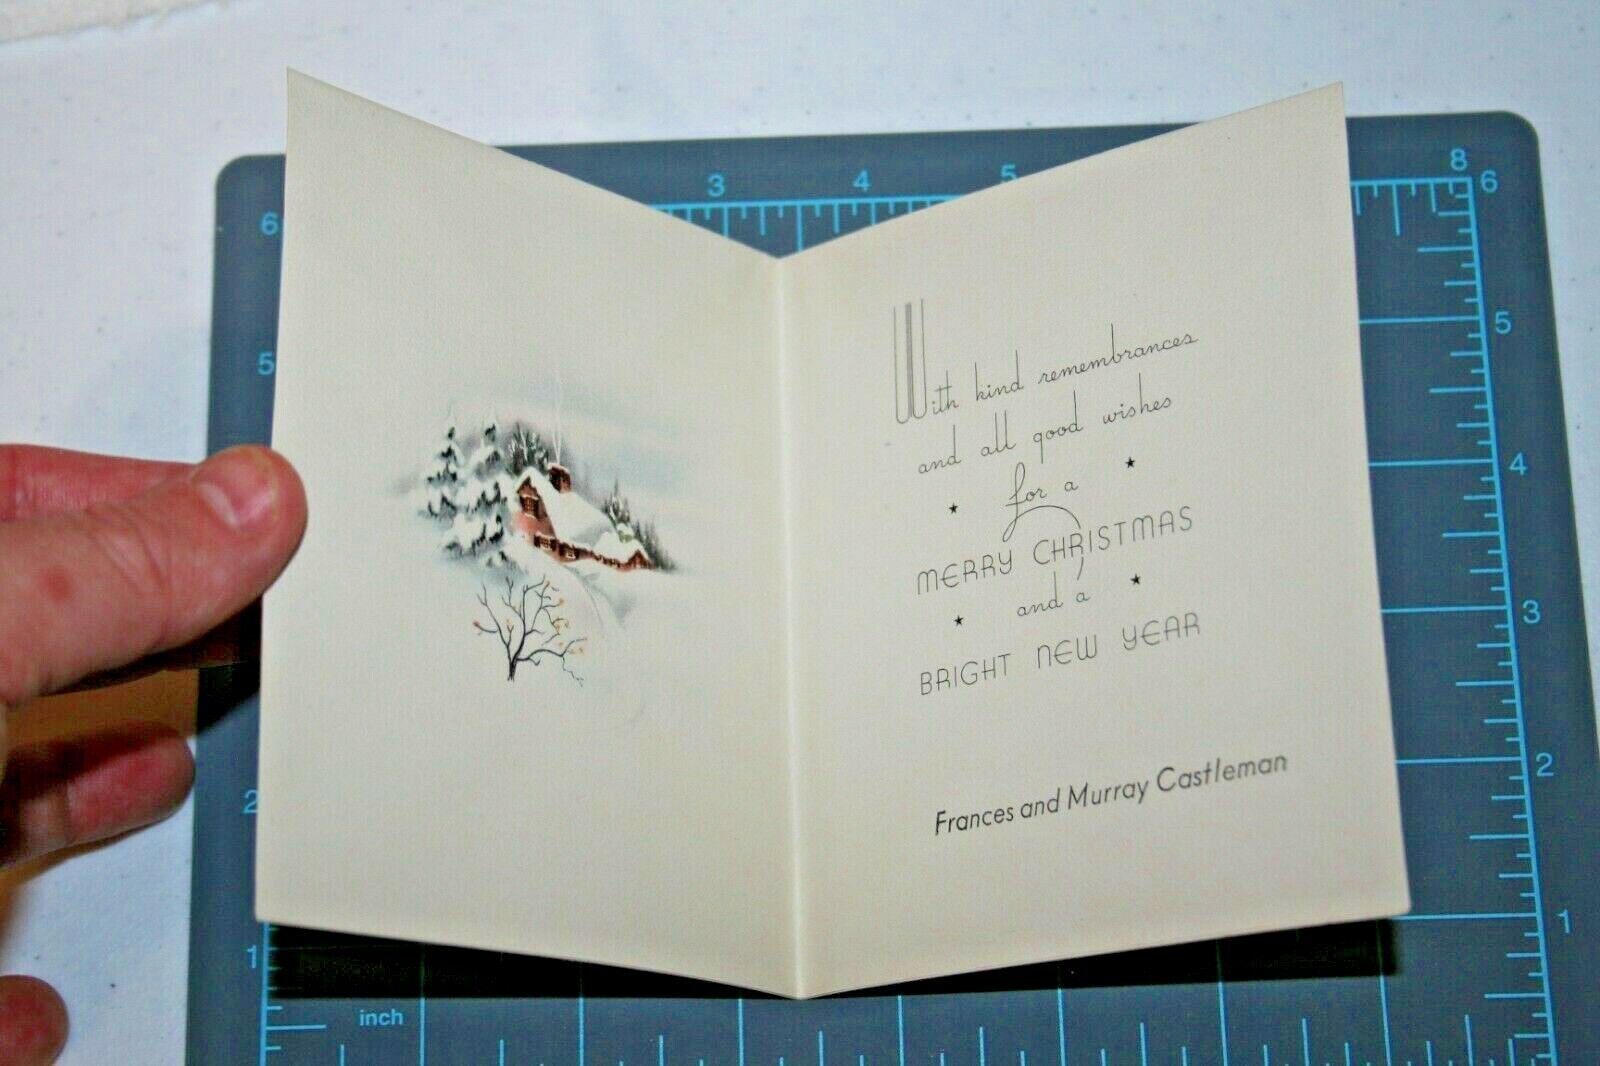 With kind remembrances
and all good wishes
for a
MERRY CHRISTMAS
and a
BRIGHT NEW YEAR
Frances and Murray Castleman
3 4 5 8
6 6
5 5
4
3
2 2
1 1
inch